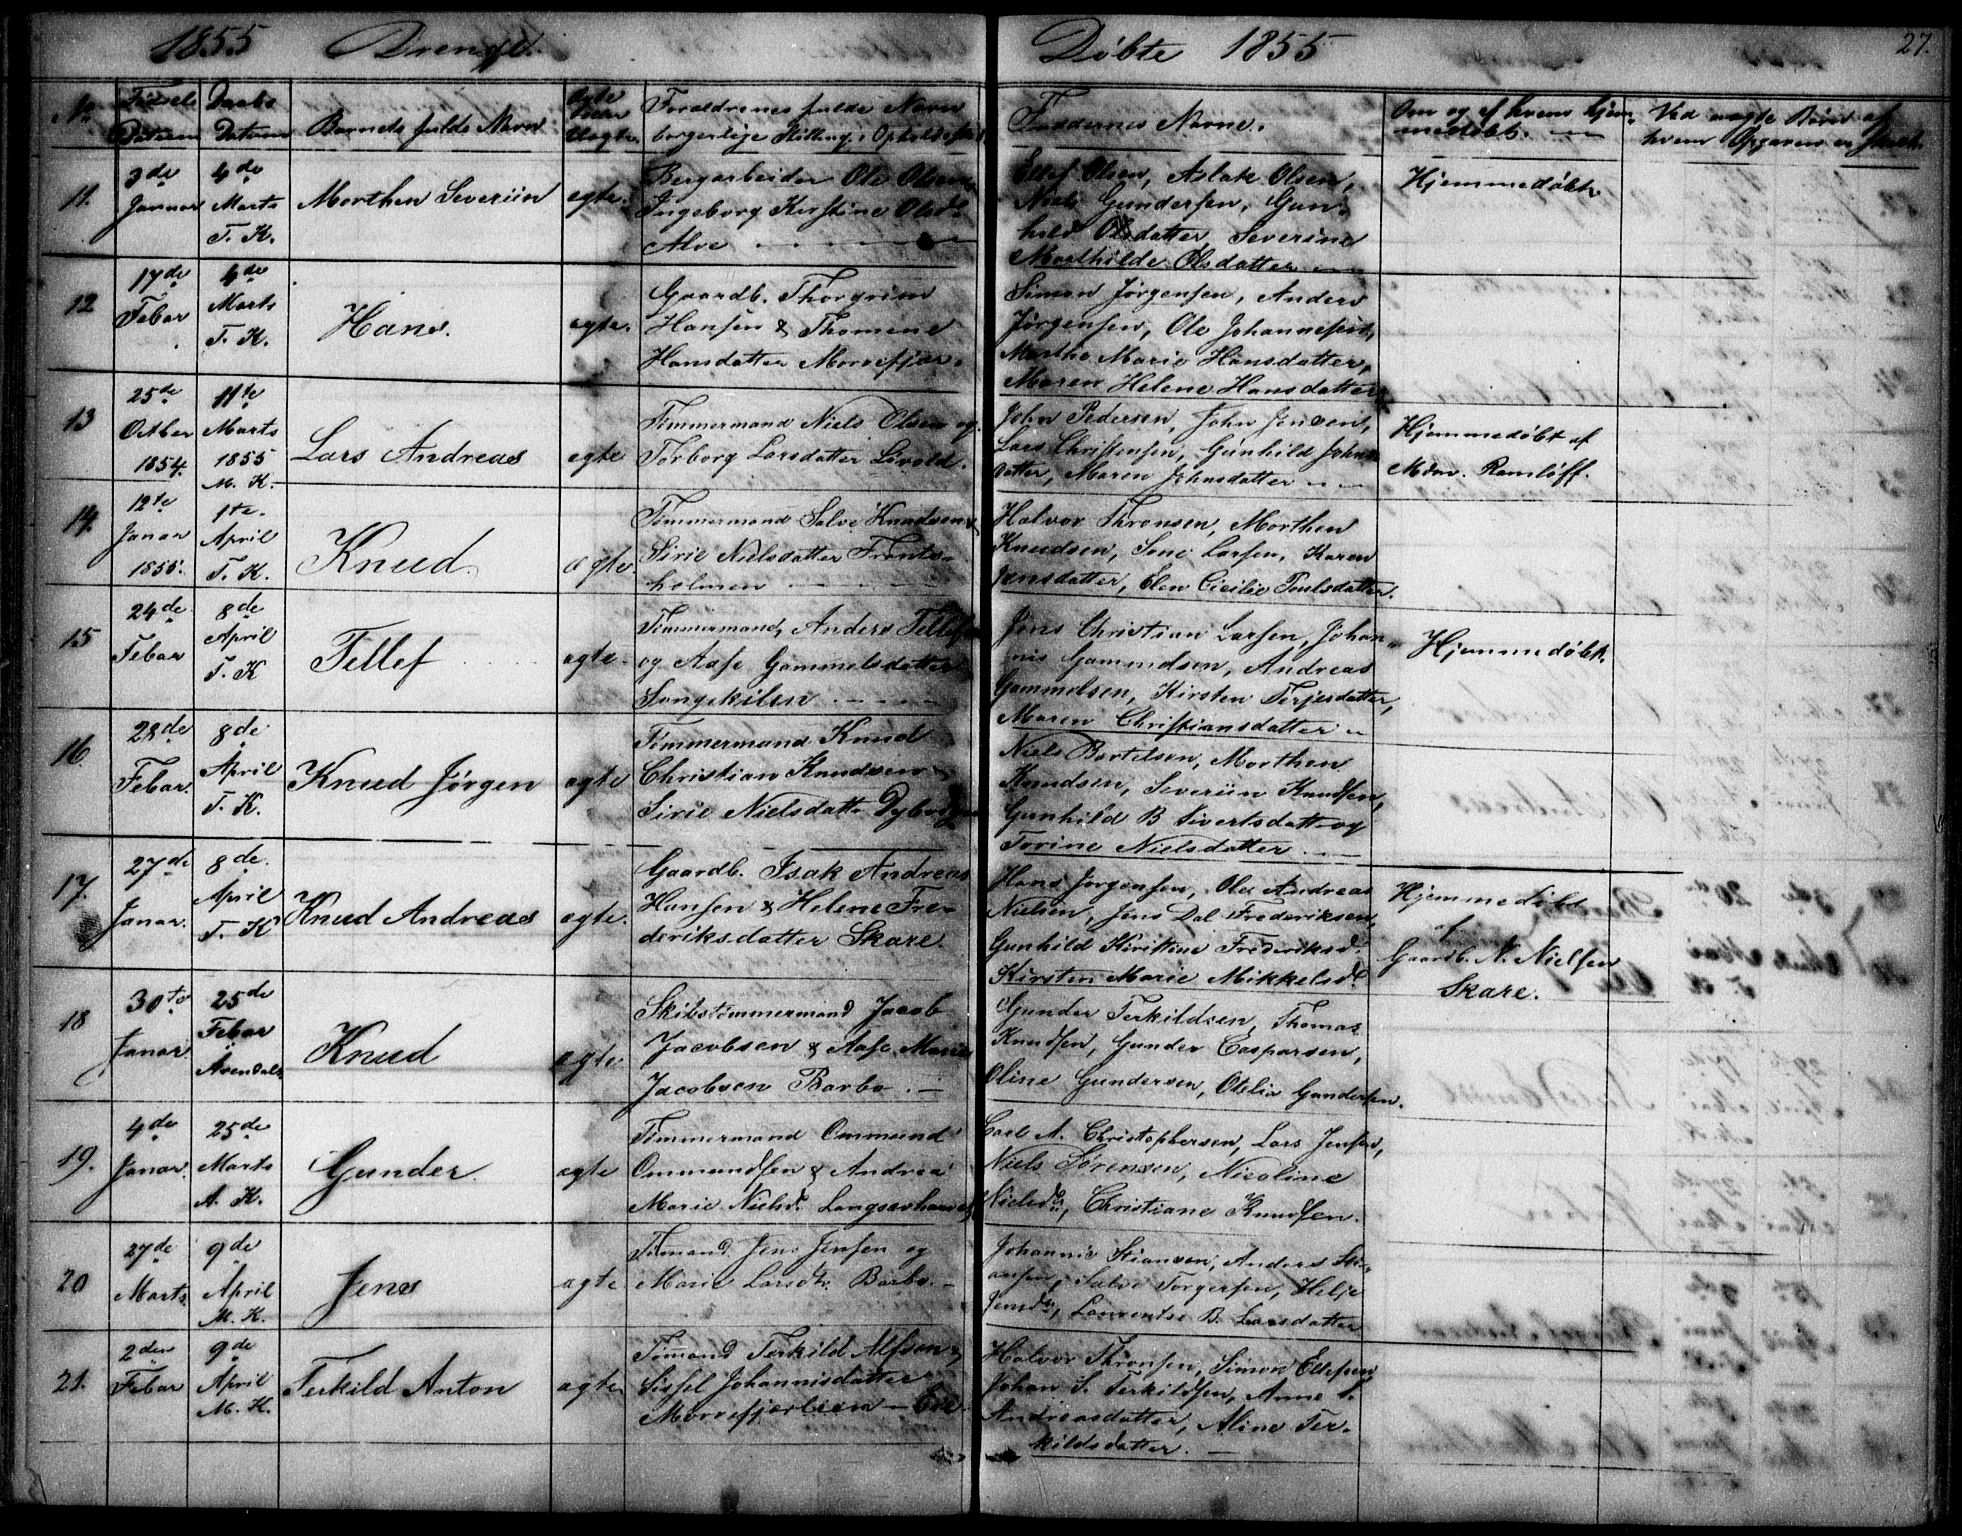 1855 Drenge. Døbte 1855 27.
No. Fødsels Datum Daabs Datum Barnets fulde Navn Ægte eller Uægte. Forældrenes fulde Navn borgerlige Stilling, Opholds
Faddernes Navne. Om og af hvem hjem-
medøbt. Ved uægte Børn af
hvem Opgaven er
11. 3de Januar 4de Marts T. K. Morthen Severiin ægte.
Bergarbeider Ole Olsen,
Ingeborg Kirstine Olsd.
Alve
Ellef Olsen, Aslak Olsen,
Niels Gundersen, Gun-
hild Olsdatter Severine
Marthilde Olsdatter
Hjemmedøbt
12 17de Febar 4de Marts T. K. Hans. ægte.
Gaardb. Thorgrim
Hansen & Thomene
Hansdatter Morrefjær.
Simon Jørgensen, Anders
Jørgensen, Ole Johannesen,
Marthe Marie Hansdatter,
Maren Helene Hansdatter
13 25de Octber 1854. 11te Marts 1855 M. K. Lars Andreas ægte
Tømmermand Niels Olsen og
Torborg Larsdatter Livold.
John Pedersen, John Jensen,
Lars Christensen, Gunhild Johns-
datter, Maren Johnsdatter
Hjemmedøbt af
Mdm. Ramløff.
14. 12te Janar 1855. 1te April T. K. Knud. ægte.
Tømmermand Salve Knudsen &
Sirie Nielsdatter
holmen
Halvor Thronsen, Morthen
Knudsen, Sone Larsen, Karen
Jensdatter, Elen Cicilie Poulsdatter.
15 24de Febar 8de April T. K Tellef ægte.
Tømmermand, Anders Tellefs
og Aase Gammelsdatter
Songekilen
Jens Christian Larsen, Johan-
nis Gammelsen, Andreas
Gammelsen, Kirsten Terjesdatter,
Maren Christiansdatter
Hjemmedøbt.
16. 28de Febar. 8de April T. K. Knud Jørgen ægte
Tømmermand Knud
Christian Knudsen &
Sirie Nielsdatt. Dyberg
Niels Bertelsen, Morthen
Knudsen, Severiin Knudsen,
Gunhild B Sivertsdatt. og
Torine Nielsdatter.
17. 27de Janar. 8de. April T. K Knud Andreas ægte.
Gaardb. Isak Andreas
Hansen & Helene Fre-
deriksdatter Skare.
Hans Jørgensen, Ole Andreas
Nielsen, Jens Dal Frederiksen,
Gunhild Kirstine Frederiksd.
Kirsten Marie Mikkelsd.
Hjemmedøbt
af
Gaardb. N. Nielsen
Skare.
18 30te Janar. 25de Febar Arendals Knud ægte
Skibstømmermand Jacob
Jacobsen & Aase Marie
Jacobsen Barbo.
Gunder Terkildsen, Thomas
Knudsen, Gunder Casparsen,
Oline Gundersen, Otelia Gundersen.
19. 4de Janar. 25de Marts A. K. Gunder. ægte
Tømmermand Ommund
Ommundsen & Andrea
Marie Nielsd.
Carl A. Christophersen, Lars Jensen,
Niels Sørensen, Nicoline
Nielsd., Christiane Knudsen.
20 27de Marts. 9de April M. K. Jens ægte
Tømand Jens Jensen og
Marie Larsdtr. Barbo.
Johannis Stiansen, Anders Sti-
ansen, Salve Torgersen, Helje
Jensdtr, Laurentse B. Larsdatter
21. 2den Febar 9de April M. K. Terkild Anton ægte
Tømand Terkild Alfsen &
Sissel Johannisdatter
Morrefjærkilen
Halvor Thronsen, Simon Ellefsen,
Johan S. Terkildsen, Anne S.
Andreasdatter, Aline Ter-
kildsdatter.